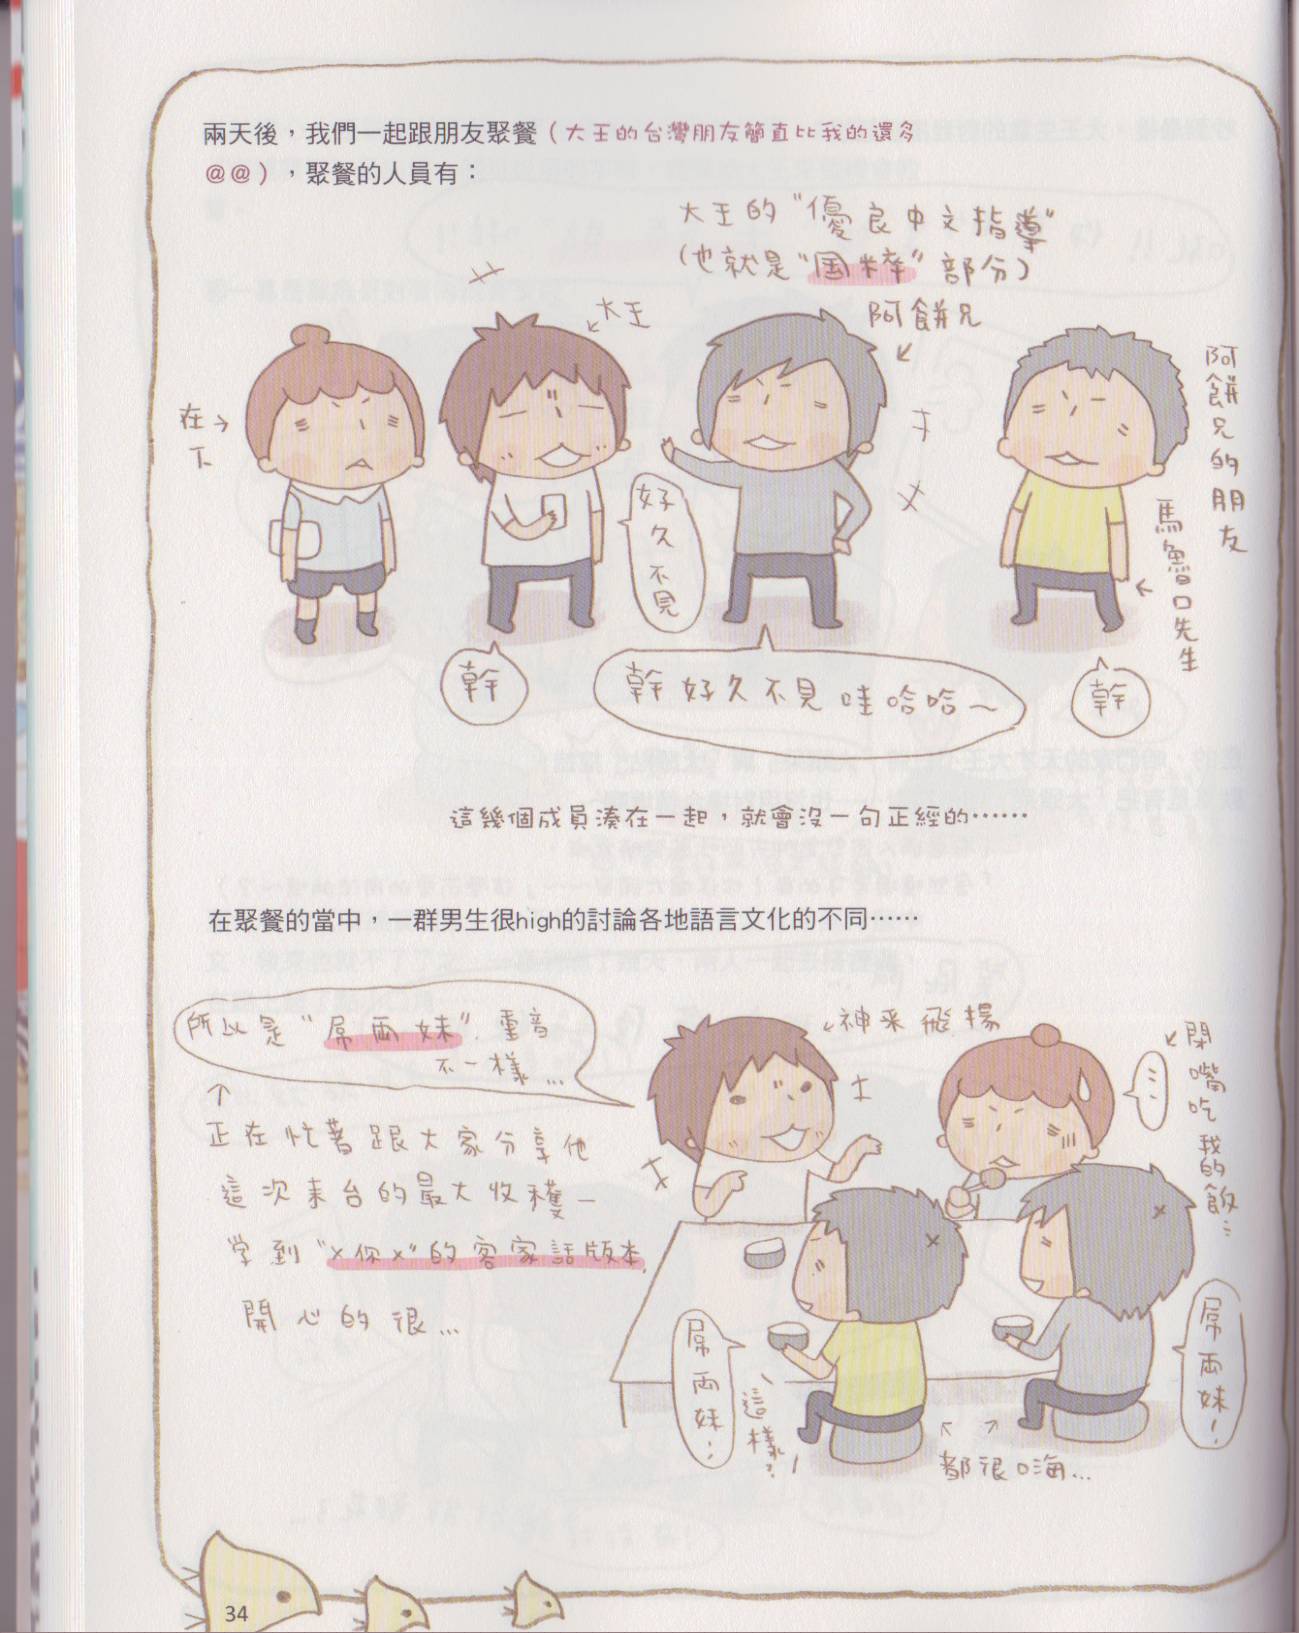 兩天後，我們一起跟朋友聚餐（大王的台灣朋友簡直比我的還多
@@），聚餐的人員有：
大王的"優良中文指導"
(也就是"国粹"部分)
阿餅兄
大王
在下
阿餅兄的朋友
馬魯口先生
好久不見
幹
幹好久不見哇哈哈～
幹
這幾個成員湊在一起，就會沒一句正經的……
在聚餐的當中，一群男生很high的討論各地語言文化的不同……
所以是"屌兩妹".重音
不一樣…
神采飛揚
閉嘴吃我的飯…
正在忙著跟大家分享他
這次來台的最大收穫—
学到"x你x"的客家話版本,
開心的很…
屌兩妹…
這樣？
屌兩妹！
都很嗨…
34